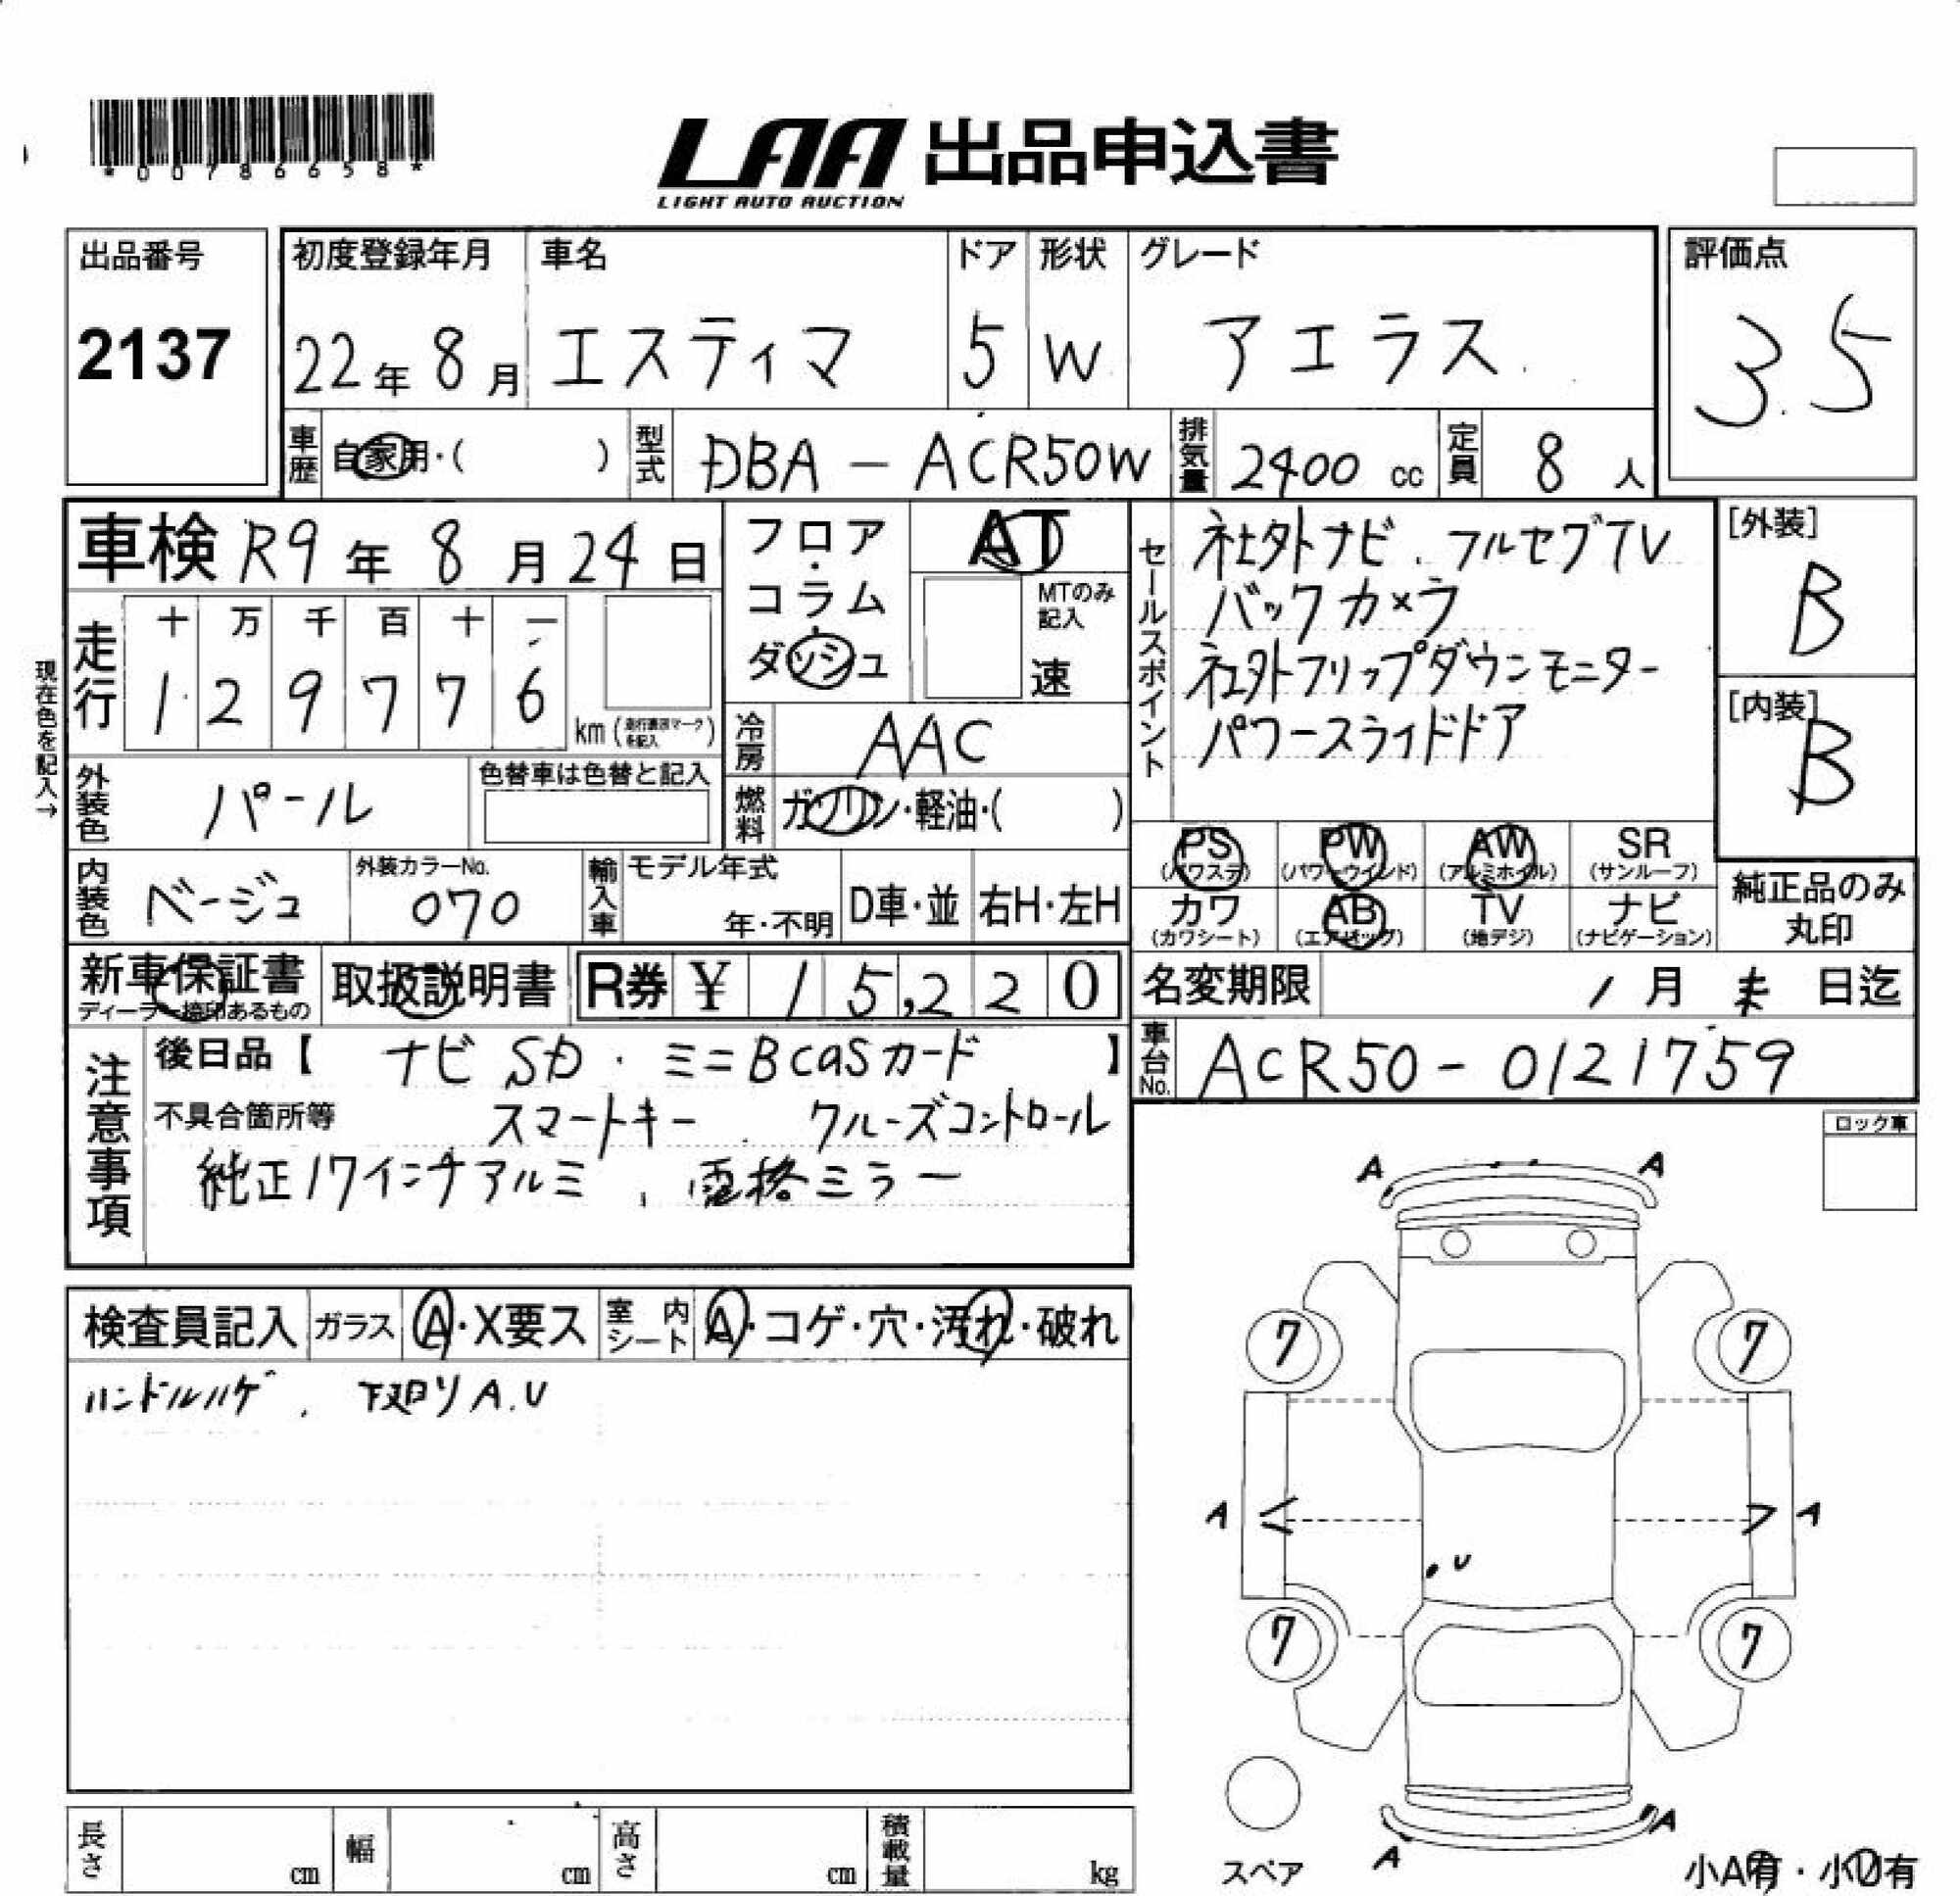 *00786658*
LAA 出品申込書
LIGHT AUTO AUCTION
出品番号
2137
初度登録年月 車名 ドア 形状 グレード
22年 8月 エスティマ 5 W アエラス
評価点
3.5
車歴 自家用・( ) 型式 DBA-ACR50W 排気量 2400 cc 定員 8 人
車検 R9年 8月 24日
フロア・コラム・ダッシュ
AT
MTのみ記入
速
セールスポイント
社外ナビ. フルセグTV
バックカメラ
社外フリップダウンモニター
パワースライドドア
[外装]
B
[内装]
B
現在色を記入→
走行 十 万 千 百 十 一
1 2 9 7 7 6
km (走行表示マークを記入)
冷房 AAC
外装色 パール 色替車は色替と記入
燃料 ガソリン・軽油・( )
PS (パワステ) PW (パワーウインド) AW (アルミホイル) SR (サンルーフ)
カワ (カワシート) AB (エアバッグ) TV (地デジ) ナビ (ナビゲーション)
純正品のみ丸印
内装色 ベージュ 外装カラーNo. 070 輸入車 モデル年式 年・不明 D車・並 右H・左H
新車保証書 ディーラー捺印あるもの 取扱説明書 R券 ¥ 15,220
名変期限 1月 末 日迄
車台No. ACR50-0121759
注意事項
後日品【 ナビSD・ミニBcasカード 】
不具合箇所等 スマートキー . クルーズコントロール
純正17インチアルミ , 電格ミラー
ロック車
A A
検査員記入 ガラス A・X要ス 室内シート A・コゲ・穴・汚れ・破れ
ハンドルハゲ. 下廻りA.U
7 7
A A
U
7 7
スペア
A A
小A有・小U有
長さ cm 幅 cm 高さ cm 積載量 kg